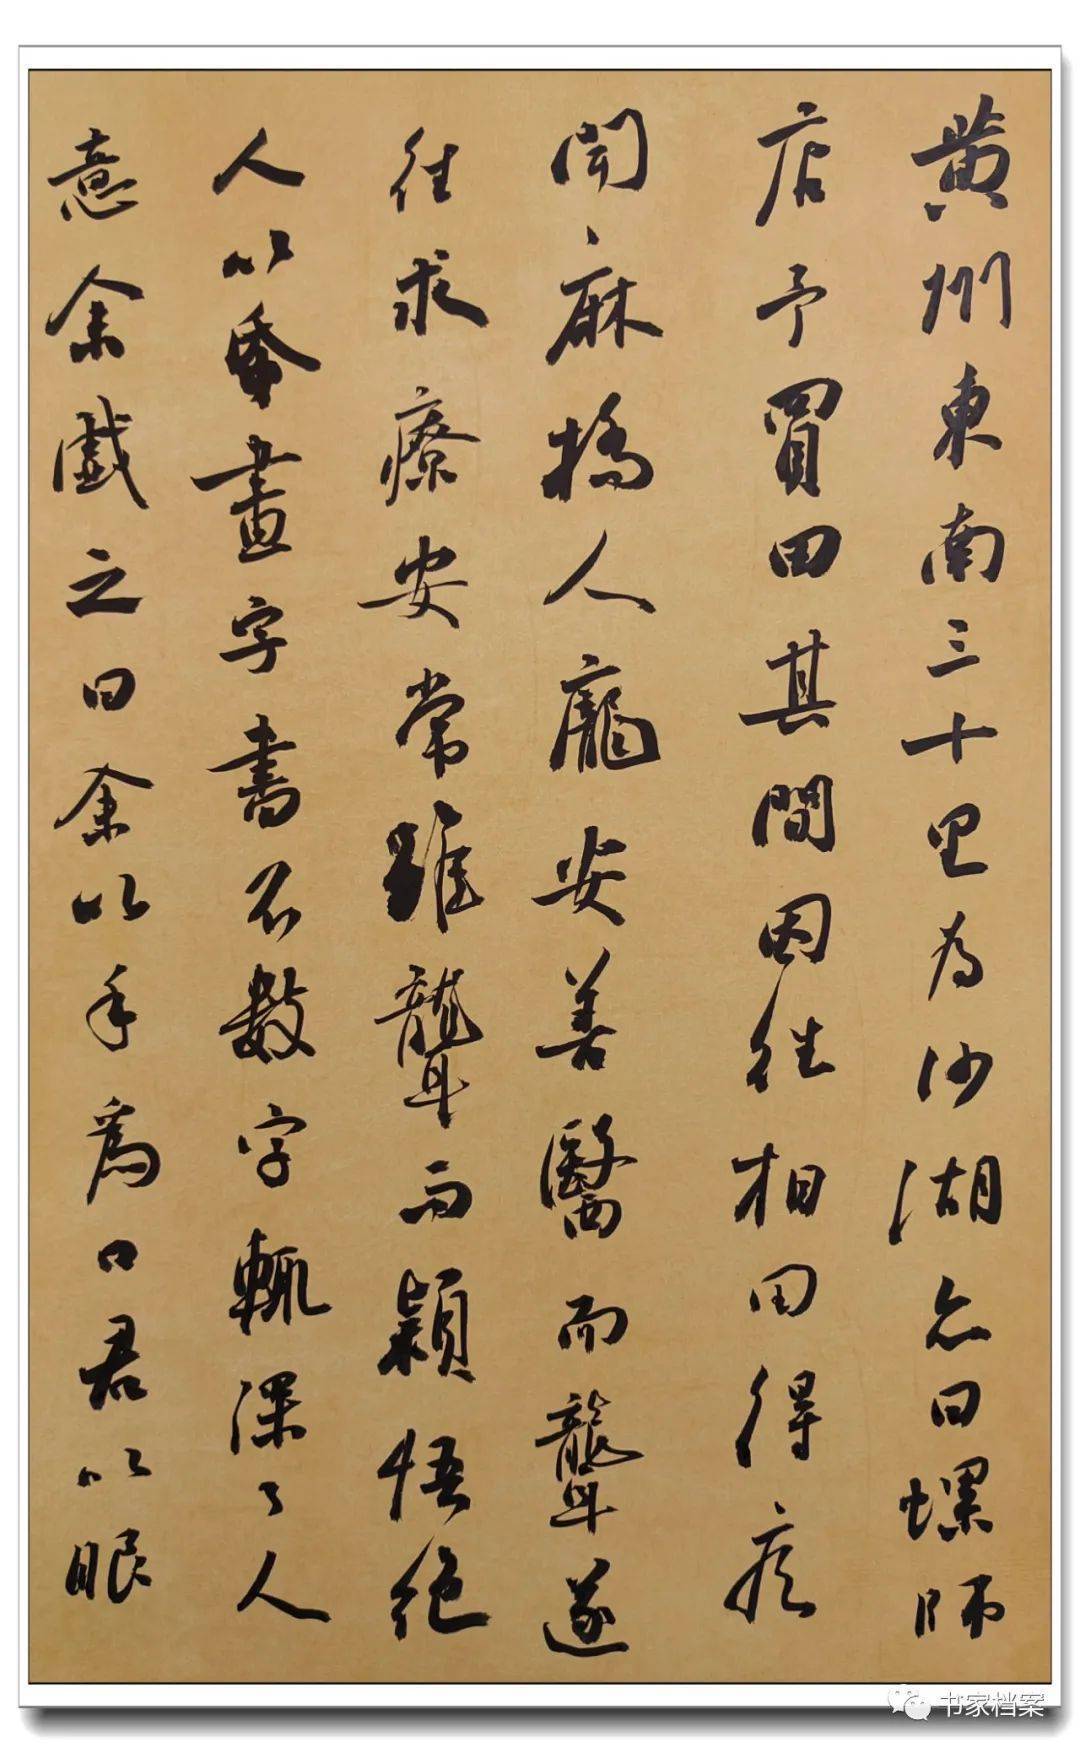 黄州東南三十里为沙湖亦曰螺師
店予買田其間因往相田得疾
聞麻橋人龐安善醫而聾遂
往求療安常雖聾而穎悟絶
人以紙畫字書不數字輒深了人
意余戲之曰余以手為口君以眼
书家档案